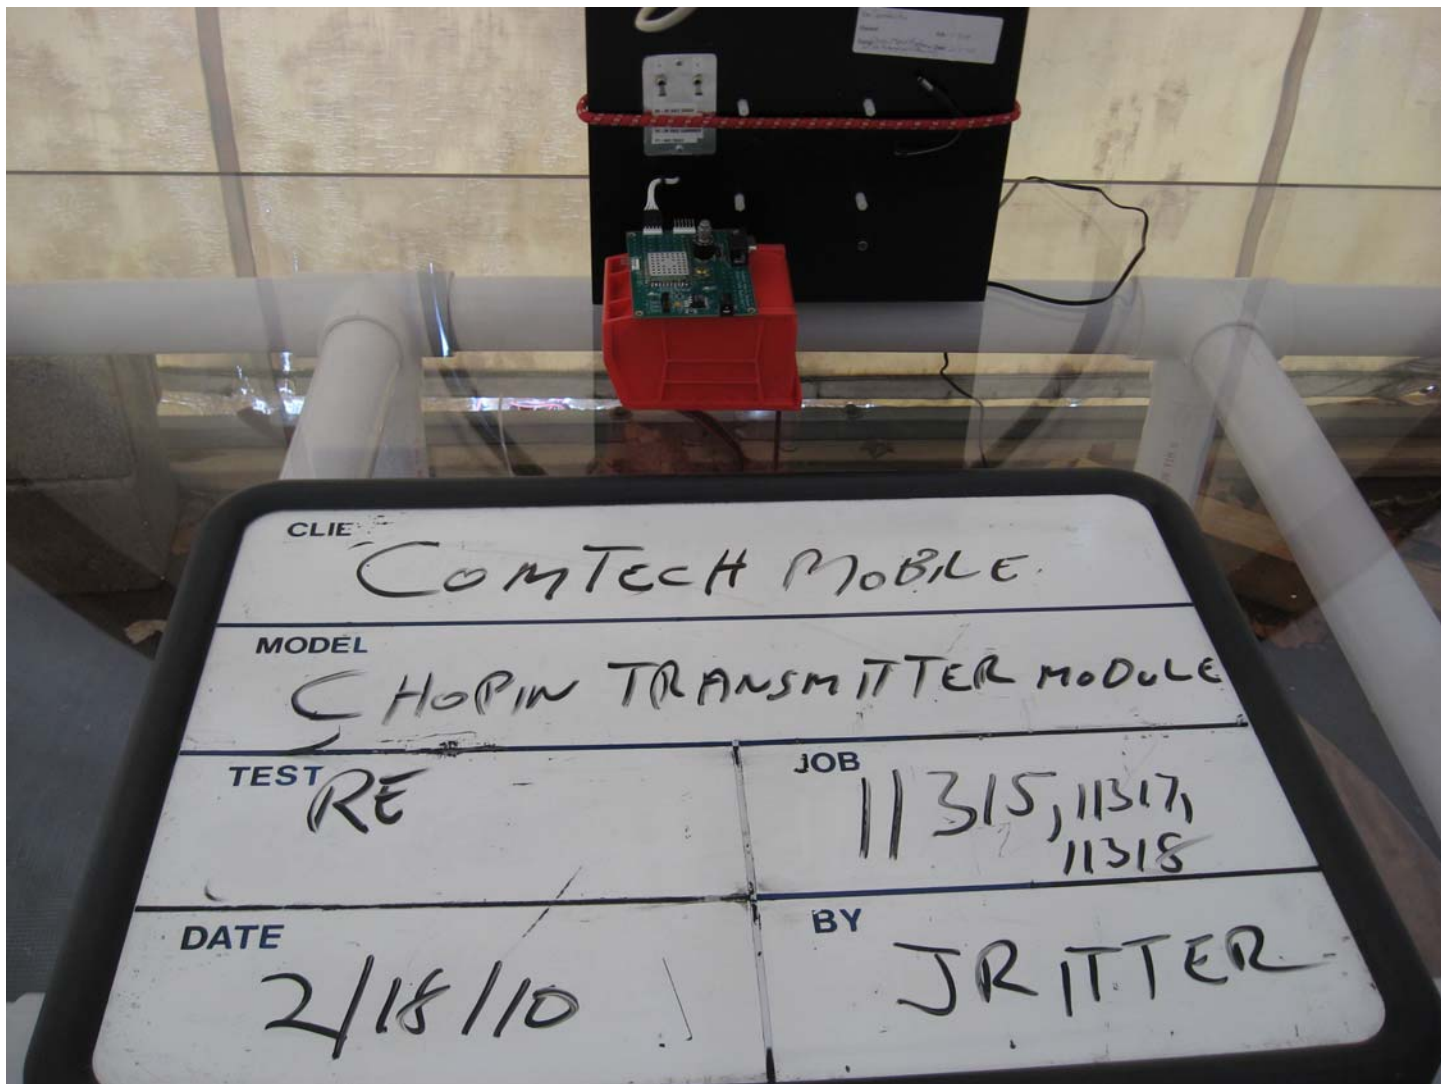 CLIE
COMTECH MOBILE.
MODEL
CHOPIN TRANSMITTER MODULE
TEST
RE
JOB
11315, 11317,
11318
DATE
2/18/10
BY
JRITTER